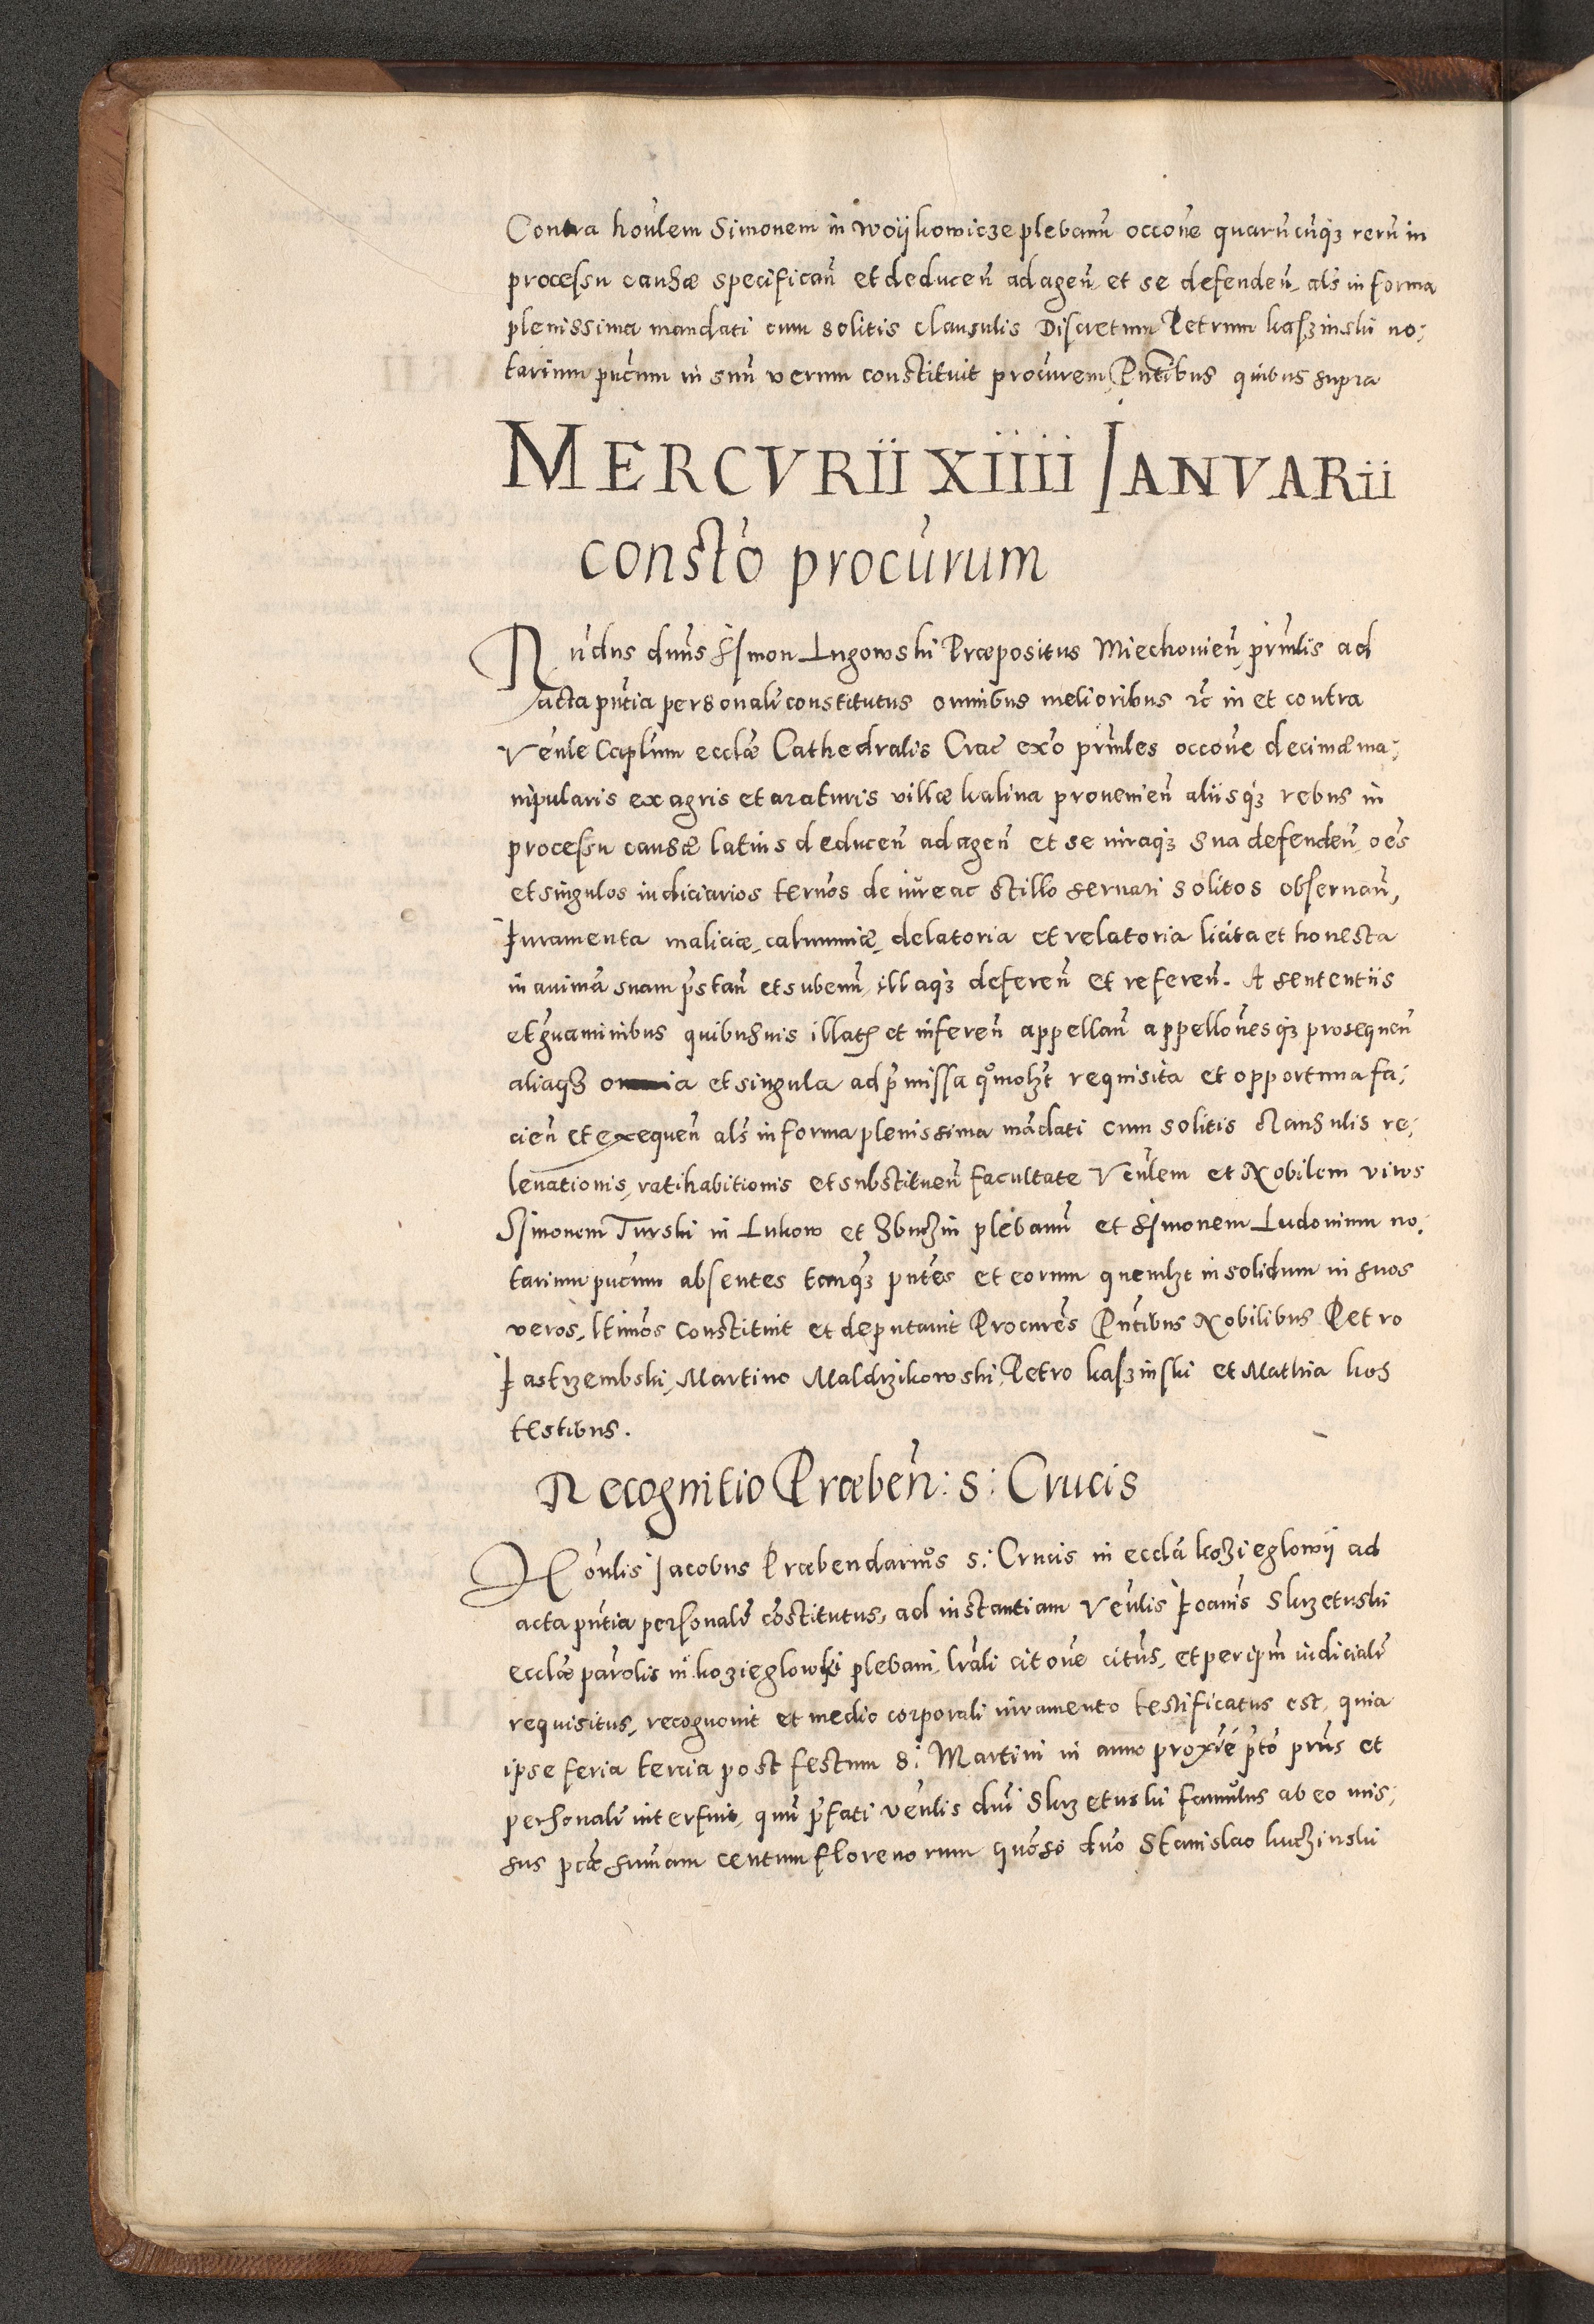 Contra hoñlem Simonem in woijkowicze plebanũ occoñe quarũcũqȝ rerũ in
processu causæ specificañ et deduceñ ad ageñ et se defendeñ, als̃ in forma
plenissima mandati cum solitis clausulis Discretum Petrum kaszinski no:
tarium pũcum in suũ verum constituit procũrem, Pñtibus quibus supra
MERCVRII XIIII IANVARII
constõ procũrum
Rñdus dnũs Simon Lugowski Præpositus Miechovieñ, prñlis ad
acta pñtia personalr̃ constitutus omnibus melioribus ꝛc̃ in et contra
Veñle Caplũm ecclæ Cathedralis Crac̃ exõ prñles occoñe decimæ ma:
nipularis ex agris et araturis villæ kalina provenieñ aliisqȝ rebus in
processu causæ latius deduceñ ad ageñ et se iuraqȝ sua defendeñ, oẽs
et singulos iudiciarios ter̃nos de iure ac stillo servari solitos observañ,
Iuramenta maliciæ, calumniæ, delatoria et relatoria licita et honesta
in animã suam p̃stañ et subeuñ, illaqȝ defereñ et refereñ. A sententiis
et g̃vaminibus quibusvis illatꝭ et infereñ appellañ appelloñesqȝ prosequeñ
aliaqȝ omnia et singula ad p̃missa qᵒmolȝt requisita et opportuna fa:
cieñ et exequeñ als̃ in forma plenissima mãdati cum solitis clausulis re:
levationis, ratihabitionis et substitueñ facultate Veñlem et Nobilem viros
Simonem Turski in Lukow et Zbuczin plebanũ et Simonem Ludovium no:
tarium pucũm absentes tanqȝ pñtes et eorum quemlȝt in solidum in suos
veros, ltimõs constituit et deputavit Procurẽs Pñtibus Nobilibus Petro
Iastrzembski, Martino Maldrzikowski, Petro kaszinski et Mathia kos
testibus.
Recognitio Præbeñ: s: Crucis
Hoñlis Jacobus Præbendariuᵒs s: Crucis in ecclã koziegłowij ad
acta pñtia personalr̃ cõstitutus, ad instantiam Veñlis Ioañis Skrzetuski
ecclæ parõlis in kozieglowki plebani, lrãli citoñe citũs, et per ipm̃ iudicialr̃
requisitus, recognovit et medio corporali iuramento testificatus est, quia
ipse feria tercia post festum s: Martini in anno proxiẽ p̃tõ prñs et
personalr̃ interfuit, quũ p̃fati veñlis dnĩ Skrzetuski famulus ab eo mis:
sus pctæ sum̃am centum florenorum quõso dnõ Stanislao kuczinski